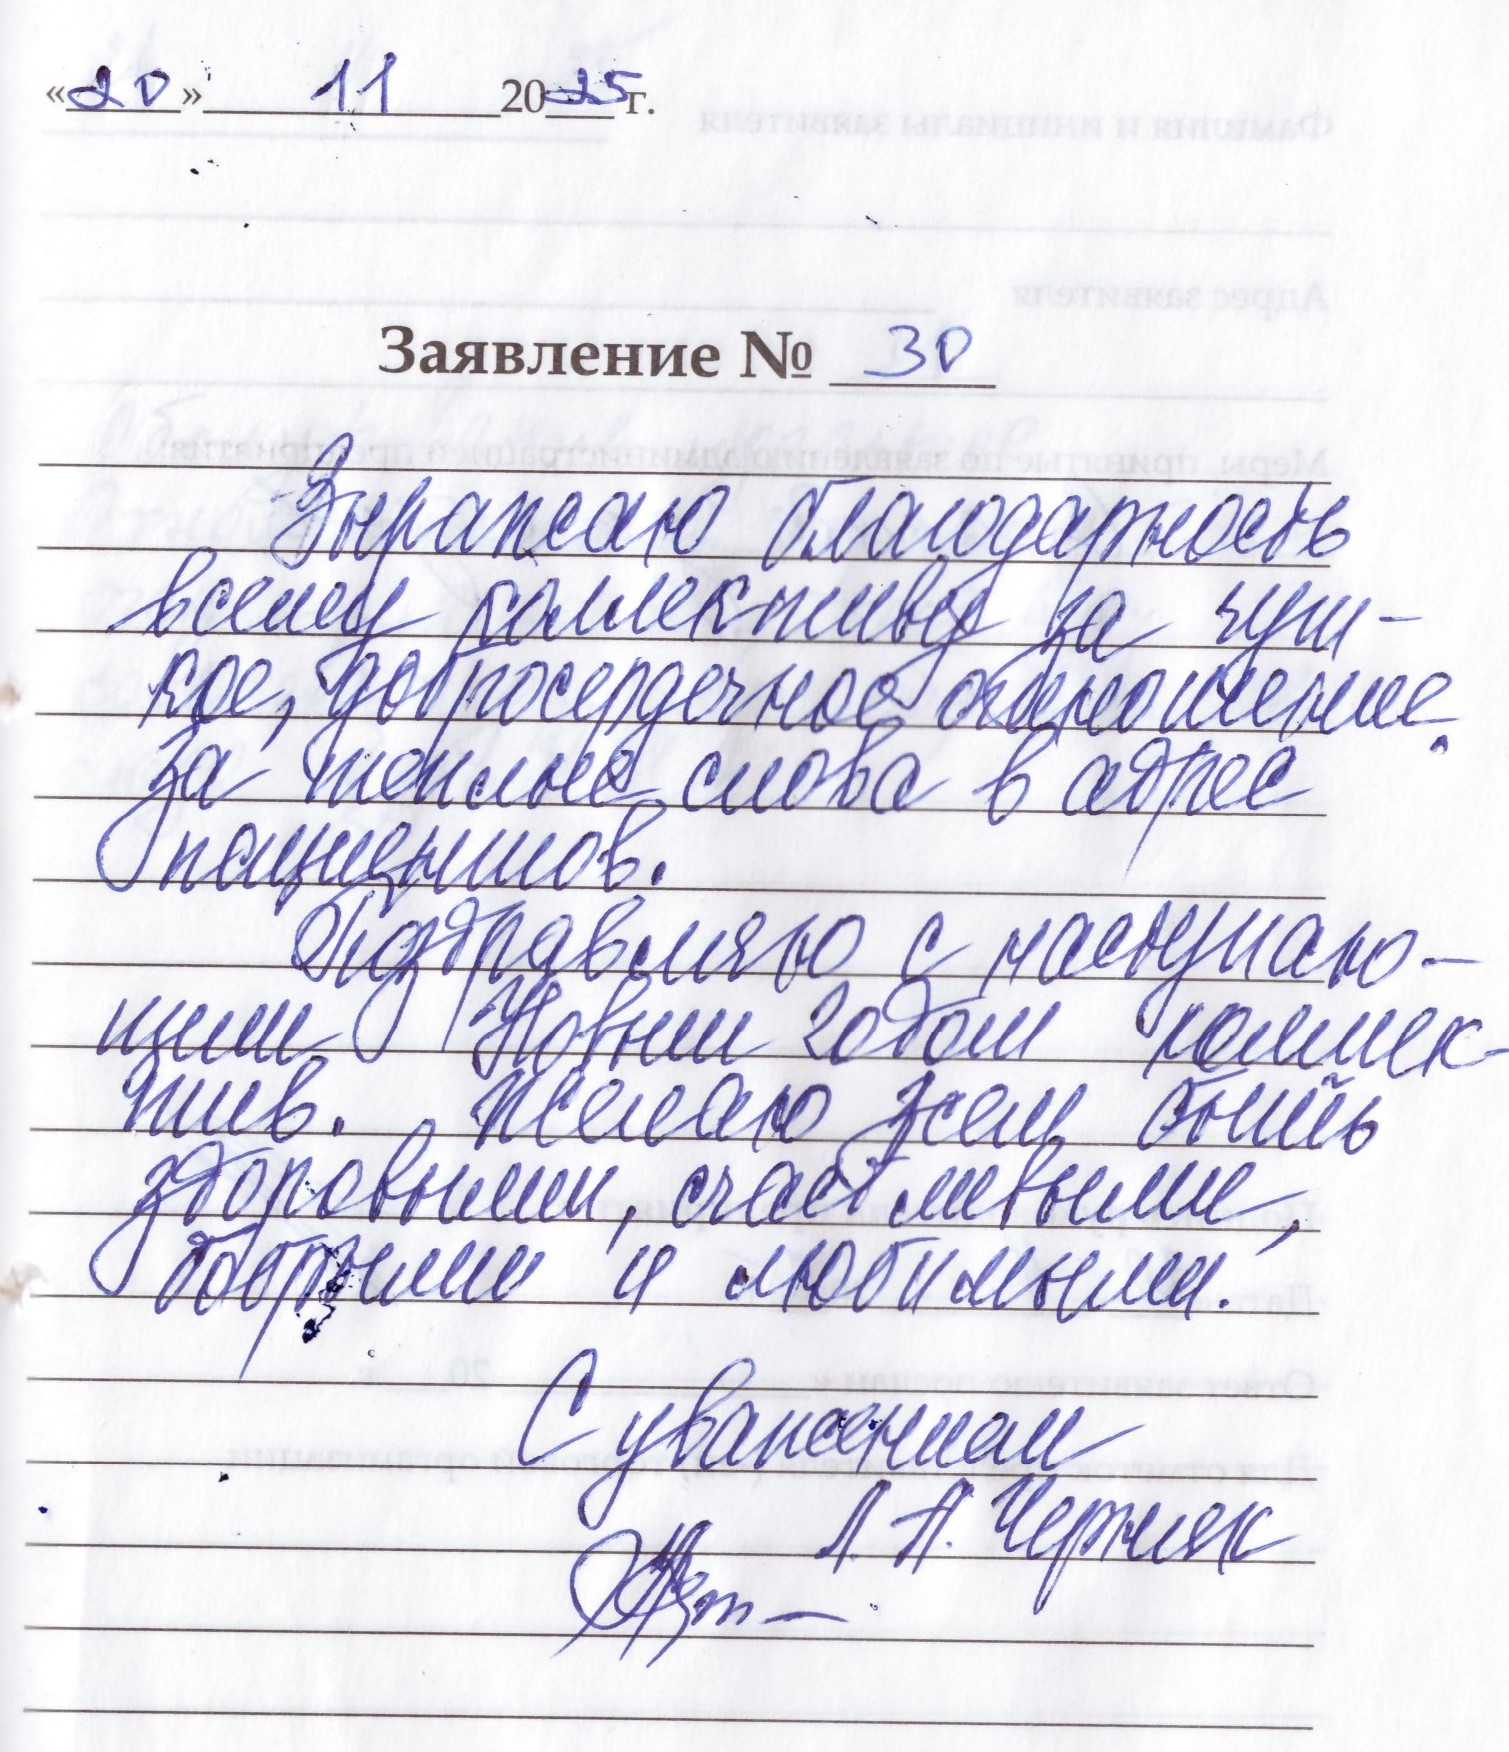 «20» 11 2025 г.
Заявление № 30
Выражаю благодарность
всему коллективу за чут-
кое, добросердечное отношение.
За теплые слова в адрес
пациентов.
Поздравляю с наступаю-
щим Новым годом коллек-
тив. Желаю всем быть
здоровыми, счастливыми,
добрыми и любимыми.
С уважением
Л. А. Черняк